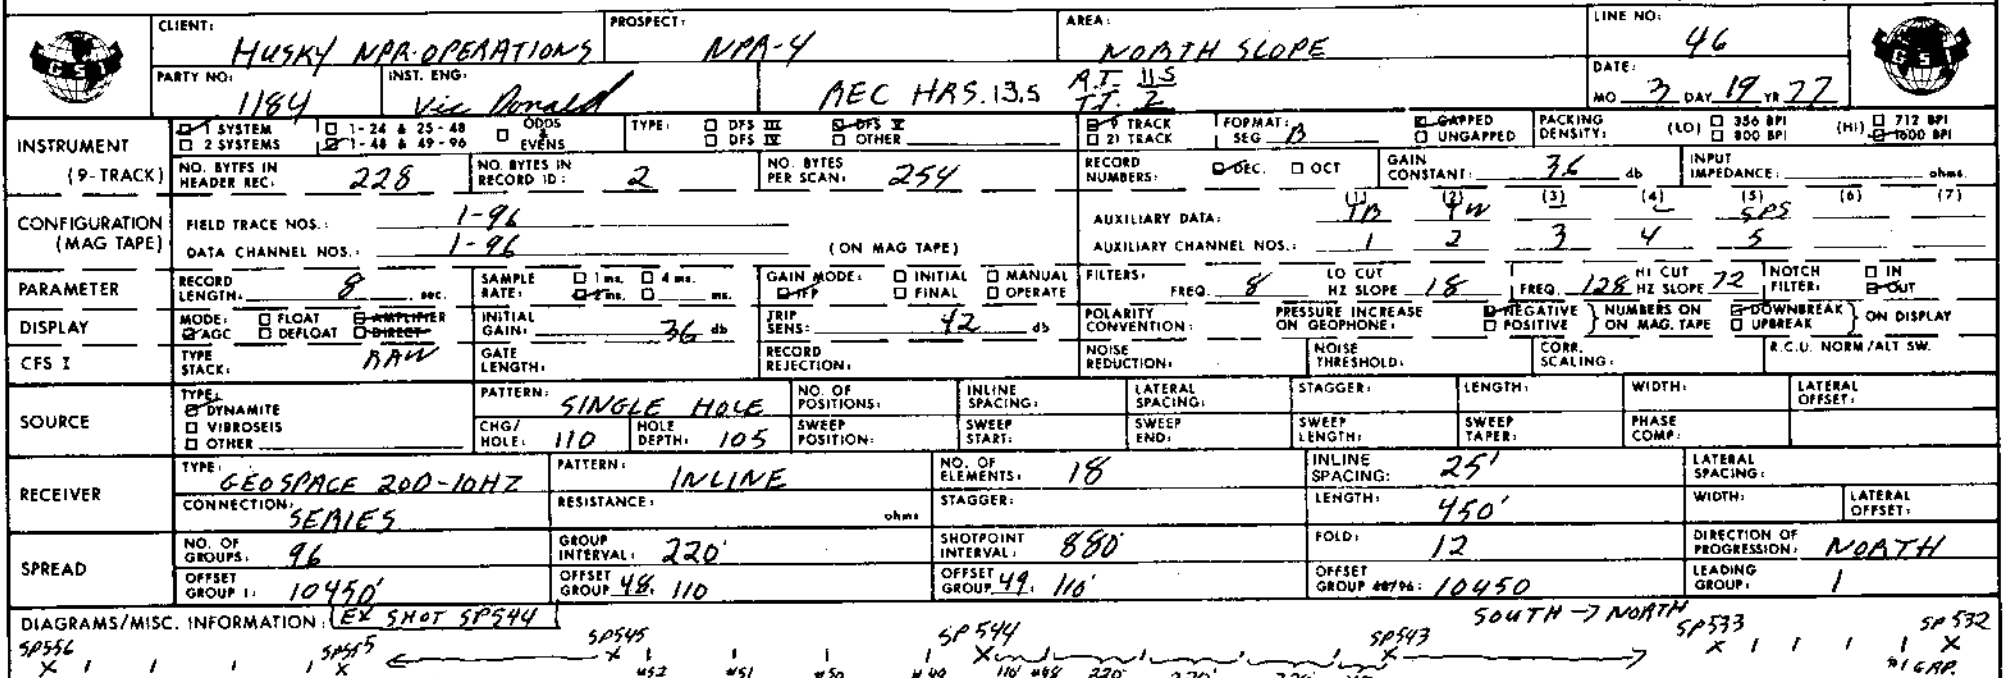 CLIENT: HUSKY NPR-OPERATIONS PROSPECT: NPR-4 AREA: NORTH SLOPE LINE NO: 46
GSI GSI
PARTY NO: 1184 INST. ENG: Vic Donald REC HRS. 13.5 R.T. 11.5 T.T. 2 DATE: MO 3 DAY 19 YR 77
INSTRUMENT (9-TRACK)
1 SYSTEM 1-24 & 25-48 ODDS & EVENS TYPE: DFS III DFS V 9 TRACK FORMAT: GAPPED PACKING DENSITY: (LO) 356 BPI (HI) 712 BPI
2 SYSTEMS 1-48 & 49-96 DFS IV OTHER 21 TRACK SEG B UNGAPPED 800 BPI 1600 BPI
NO. BYTES IN HEADER REC: 228 NO. BYTES IN RECORD ID: 2 NO. BYTES PER SCAN: 254 RECORD NUMBERS: DEC. OCT GAIN CONSTANT: 36 db INPUT IMPEDANCE: ohms.
CONFIGURATION (MAG TAPE)
(1) (2) (3) (4) (5) (6) (7)
FIELD TRACE NOS.: 1-96 AUXILIARY DATA: TB SPS
DATA CHANNEL NOS.: 1-96 (ON MAG TAPE) AUXILIARY CHANNEL NOS.: 1 2 3 4 5
PARAMETER RECORD LENGTH: 8 sec. SAMPLE RATE: 1 ms. 4 ms. 2 ms. ms. GAIN MODE: INITIAL MANUAL IFP FINAL OPERATE FILTERS: FREQ. 8 LO CUT HZ SLOPE 18 FREQ. 128 HI CUT HZ SLOPE 72 NOTCH FILTER: IN OUT
DISPLAY MODE: FLOAT AMPLIFIER AGC DEFLOAT DIRECT INITIAL GAIN: 36 db TRIP SENS: 42 db POLARITY CONVENTION: PRESSURE INCREASE ON GEOPHONE: NEGATIVE POSITIVE NUMBERS ON ON MAG. TAPE DOWNBREAK UPBREAK ON DISPLAY
CFS I TYPE STACK: RAW GATE LENGTH: RECORD REJECTION: NOISE REDUCTION: NOISE THRESHOLD: CORR. SCALING: R.C.U. NORM/ALT SW.
SOURCE TYPE: DYNAMITE VIBROSEIS OTHER
PATTERN: SINGLE HOLE NO. OF POSITIONS: INLINE SPACING: LATERAL SPACING: STAGGER: LENGTH: WIDTH: LATERAL OFFSET:
CHG/HOLE: 110 HOLE DEPTH: 105 SWEEP POSITION: SWEEP START: SWEEP END: SWEEP LENGTH: SWEEP TAPER: PHASE COMP:
RECEIVER TYPE: GEOSPACE 20D-10HZ PATTERN: INLINE NO. OF ELEMENTS: 18 INLINE SPACING: 25' LATERAL SPACING:
CONNECTION: SERIES RESISTANCE: ohms STAGGER: LENGTH: 450' WIDTH: LATERAL OFFSET:
SPREAD NO. OF GROUPS: 96 GROUP INTERVAL: 220' SHOTPOINT INTERVAL: 880' FOLD: 12 DIRECTION OF PROGRESSION: NORTH
OFFSET GROUP 1: 10450' OFFSET GROUP 48: 110 OFFSET GROUP 49: 110' OFFSET GROUP 48/96: 10450 LEADING GROUP: 1
DIAGRAMS/MISC. INFORMATION: EX SHOT SP544 SOUTH → NORTH
SP556 SP555 SP545 SP544 SP543 SP533 SP532
#52 #51 #50 #49 110' #48 220' 220' 220' #1 GRP.